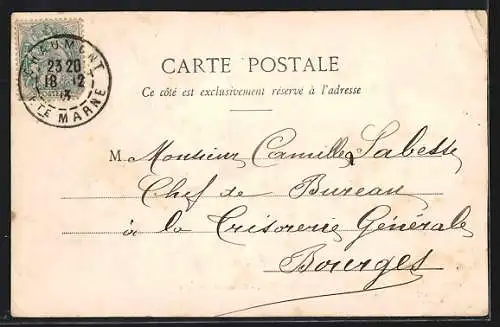 CHAUMONT
23 20
18 12
3
HTE MARNE
CARTE POSTALE
Ce côté est exclusivement réservé à l'adresse
M. Monsieur Camille Labesse
Chef de Bureau
à la Trisorerie Générale
Bourges